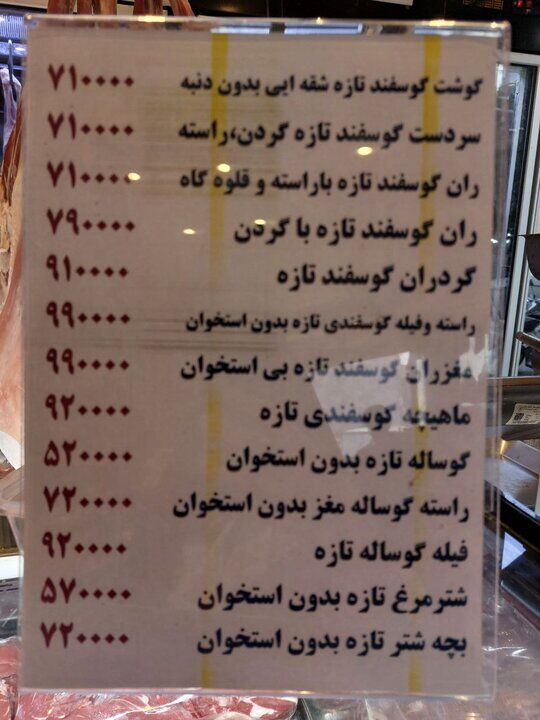 گوشت گوسفند تازه شقه ایی بدون دنبه ۷۱۰۰۰۰
سردست گوسفند تازه گردن،راسته ۷۱۰۰۰۰
ران گوسفند تازه باراسته و قلوه گاه ۷۱۰۰۰۰
ران گوسفند تازه با گردن ۷۹۰۰۰۰
گردران گوسفند تازه ۹۱۰۰۰۰
راسته وفیله گوسفندی تازه بدون استخوان ۹۹۰۰۰۰
مغزران گوسفند تازه بی استخوان ۹۹۰۰۰۰
ماهیچه گوسفندی تازه ۹۲۰۰۰۰
گوساله تازه بدون استخوان ۵۲۰۰۰۰
راسته گوساله مغز بدون استخوان ۷۲۰۰۰۰
فیله گوساله تازه ۹۲۰۰۰۰
شترمرغ تازه بدون استخوان ۵۷۰۰۰۰
بچه شتر تازه بدون استخوان ۷۲۰۰۰۰